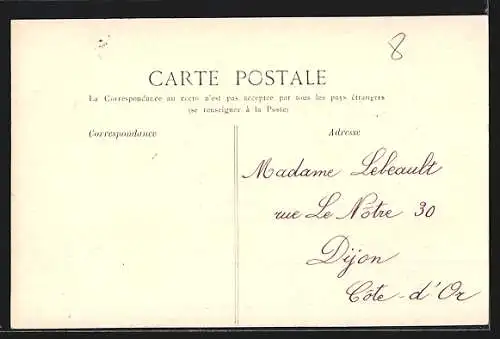 8
CARTE POSTALE
La Correspondance au recto n'est pas acceptée par tous les pays étrangers
(se renseigner à la Poste)
Correspondance
Adresse
Madame Lebeault
rue Le Nôtre 30
Dijon
Côte-d'Or